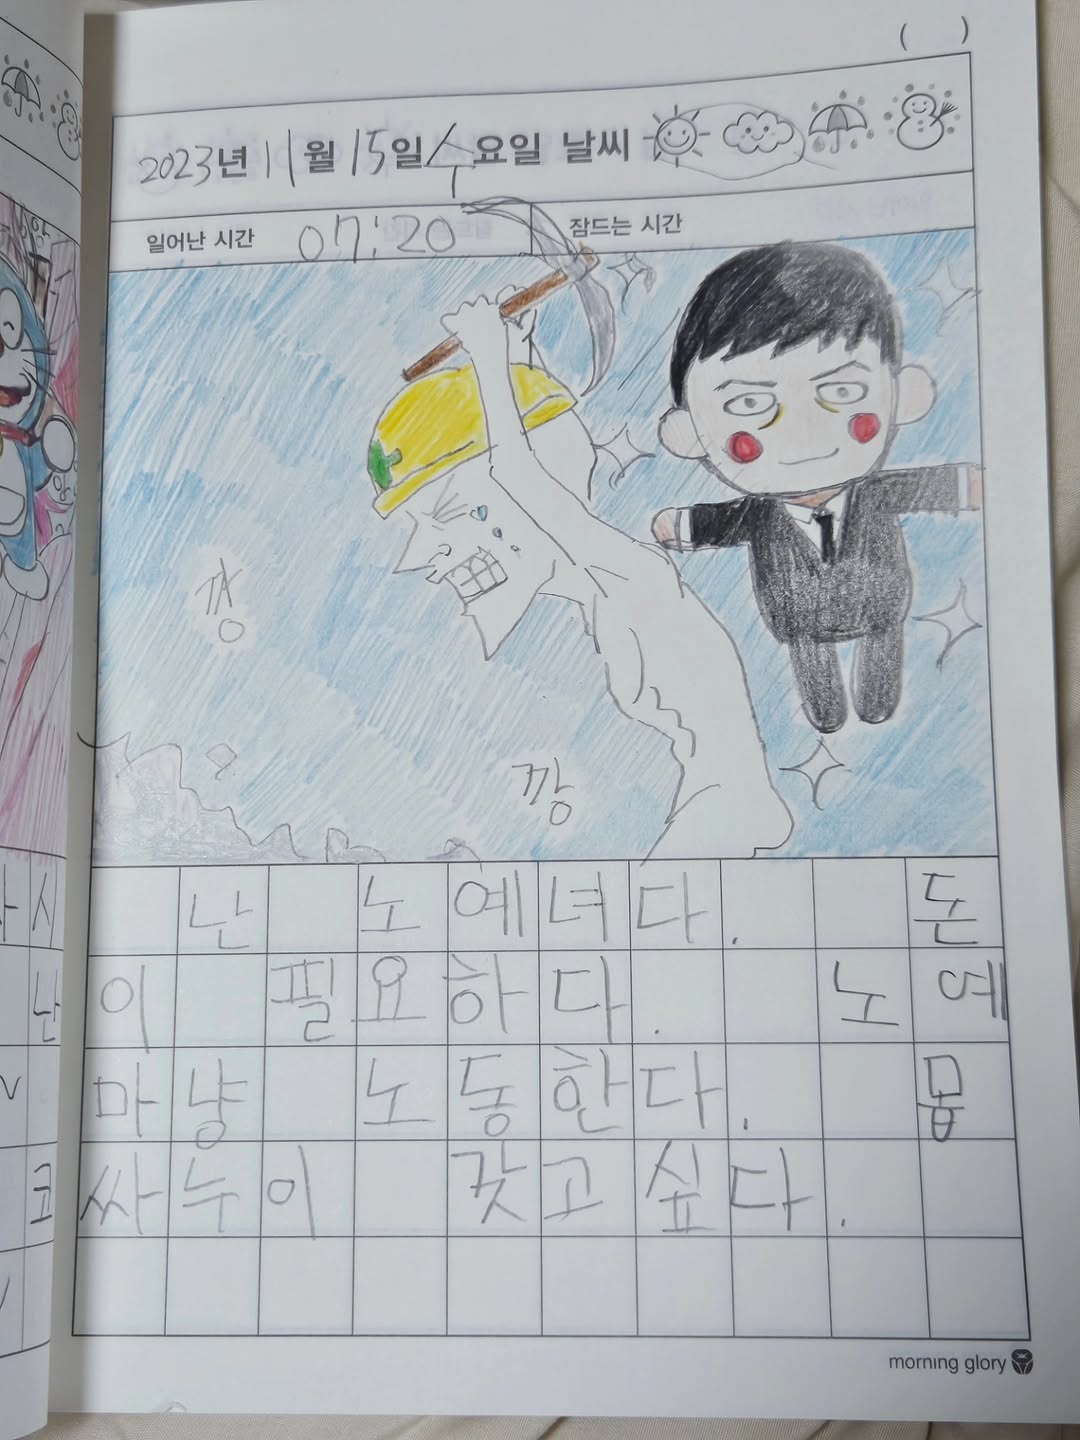 ( )
2023년 11월 15일 수요일 날씨
일어난 시간 07:20 잠드는 시간
깡
깡
난 노예녀다. 돈
이 필요하다. 노예
마냥 노동한다. 몹
싸누이 갖고 싶다.
시
난
코
morning glory